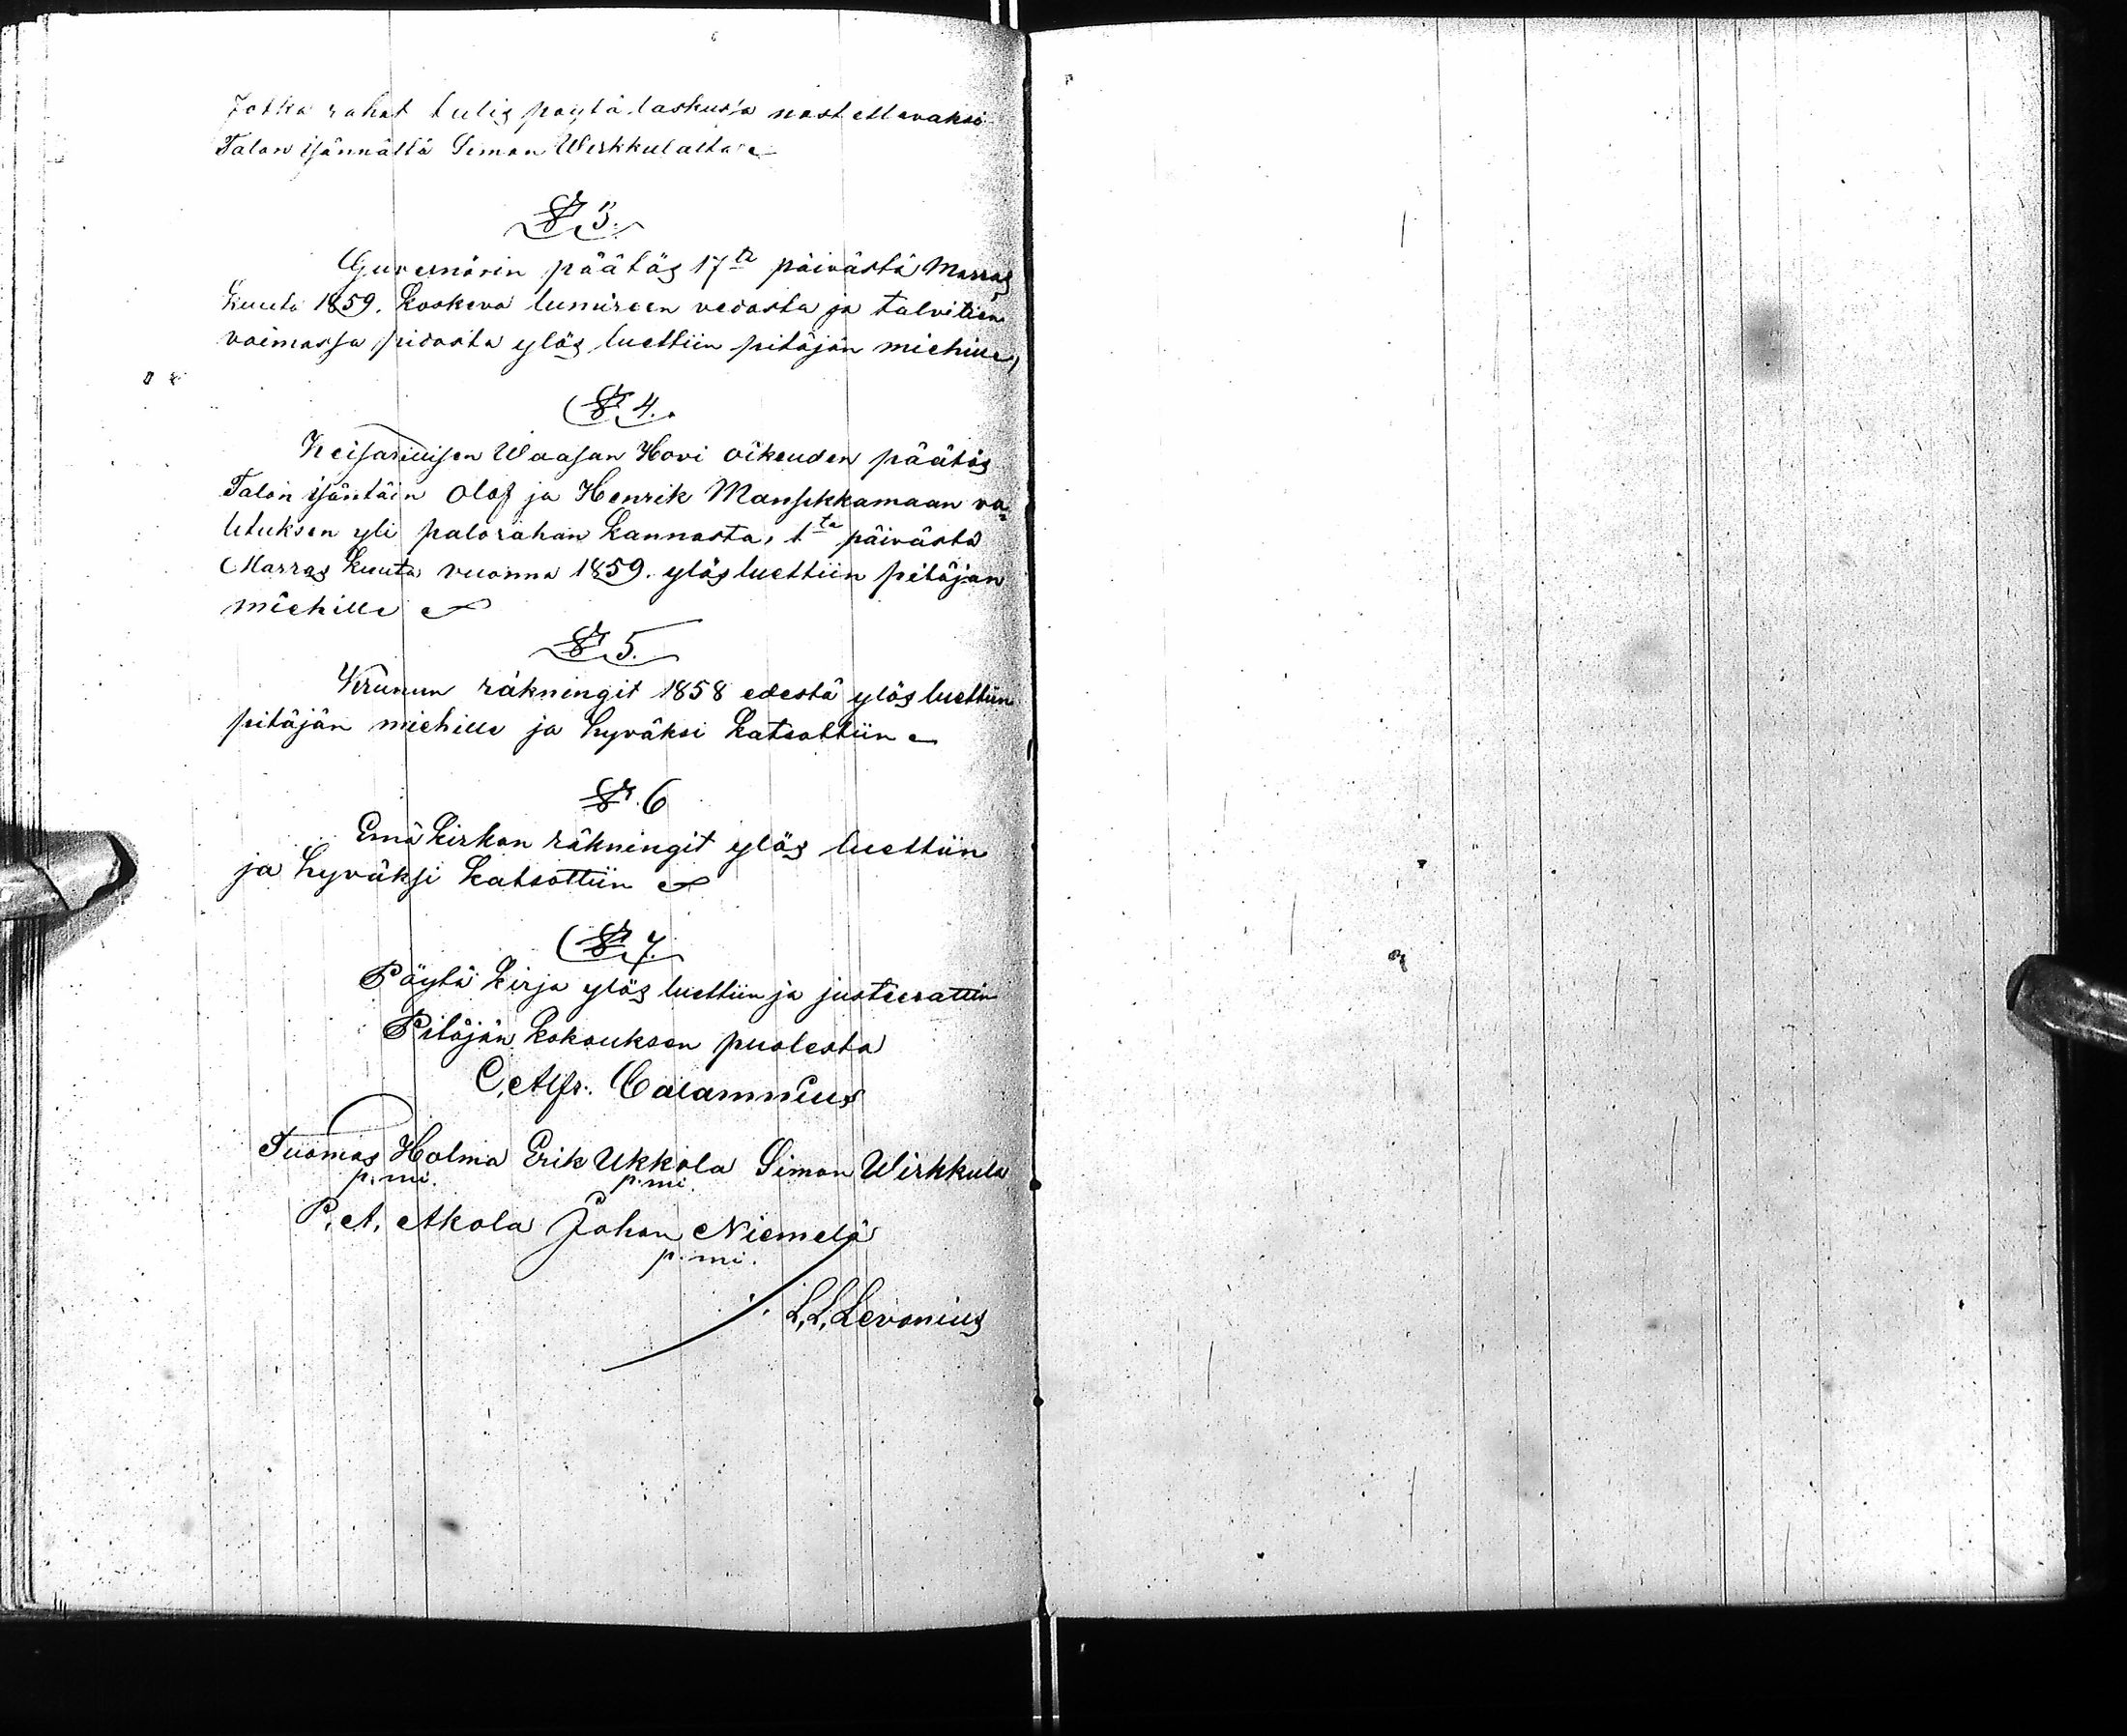 Jotka rahat tulis pöytä laskussa nostettavaksi
Talon isännältä Simon Wirkkulalta
§ 3.
Guvernörin päätös 17ta päivästä Marras
Kuuta 1859. koskeva lumireen vedosta ja talvitien
voimassa pidosta ylös luettiin pitäjän miehille,
§ 4.
Keisarillisen Waasan Hovi oikeuden päätös
Talon isäntäin Olof ja Henrik Mansikkamaan va=
lituksen yli palorahan kannosta, 1ta päivästä
Marras kuuta vuonna 1859. ylös luettiin pitäjän
miehille
§ 5.
Krunun räkningit 1858 edestä ylös luettiin
pitäjän miehille ja hyväksi katsottiin
§. 6
Emä kirkon räkningit ylös luettiin
ja hyväksi katsottiin
§ 7.
Pöytä kirja ylös luettiin ja justeerattiin
Pitäjän kokouksen puolesta
C. Alfr. Calamnius
Tuomas Holma Erik Ukkola Simon Wirkkula
p. mi. p. mi.
P. A. Akola Johan Niemelä
p. mi.
L. L. Levonius